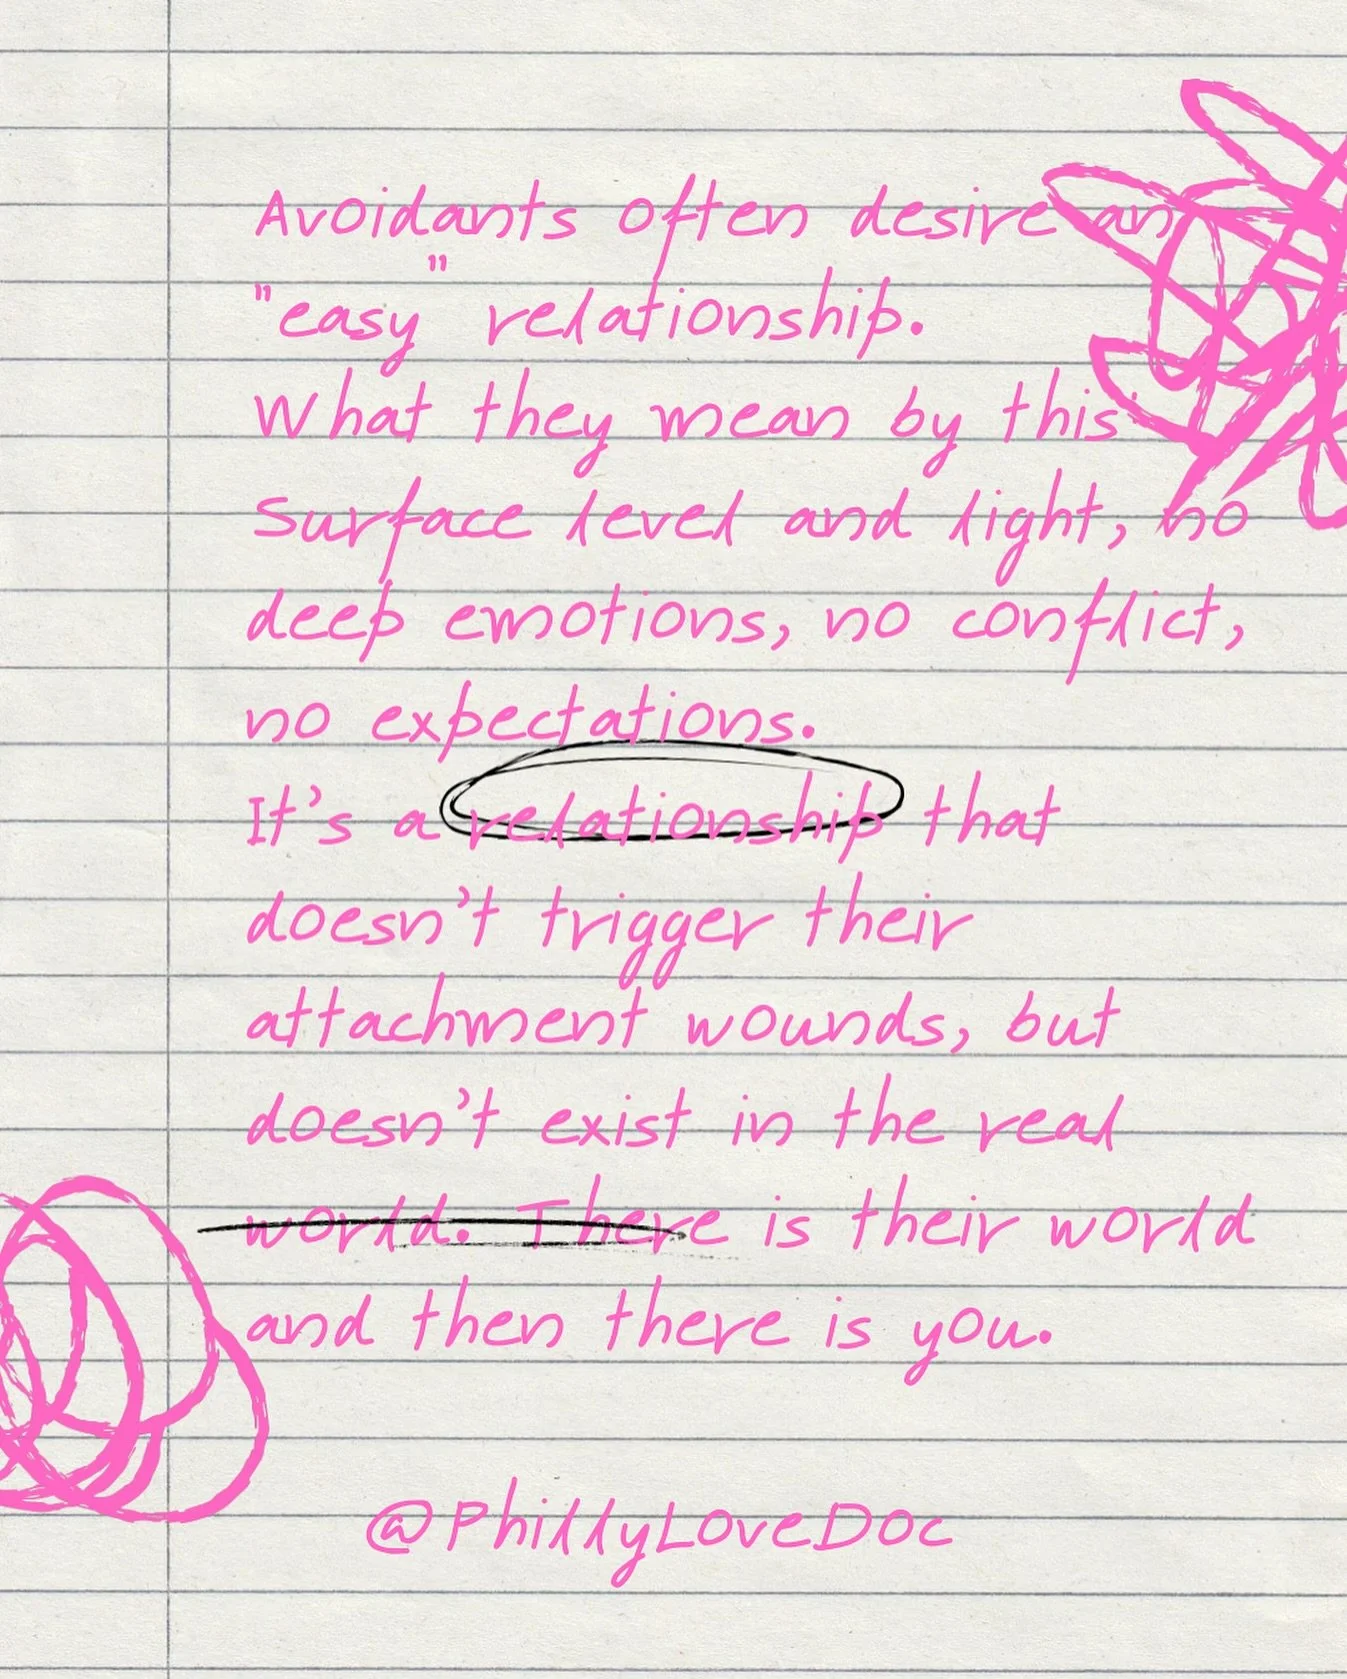 Avoidants often desire an
"easy" relationship.
What they mean by this:
Surface level and light, no
deep emotions, no conflict,
no expectations.
It's a relationship that
doesn't trigger their
attachment wounds, but
doesn't exist in the real
world. There is their world
and then there is you.
@PhillyLoveDoc